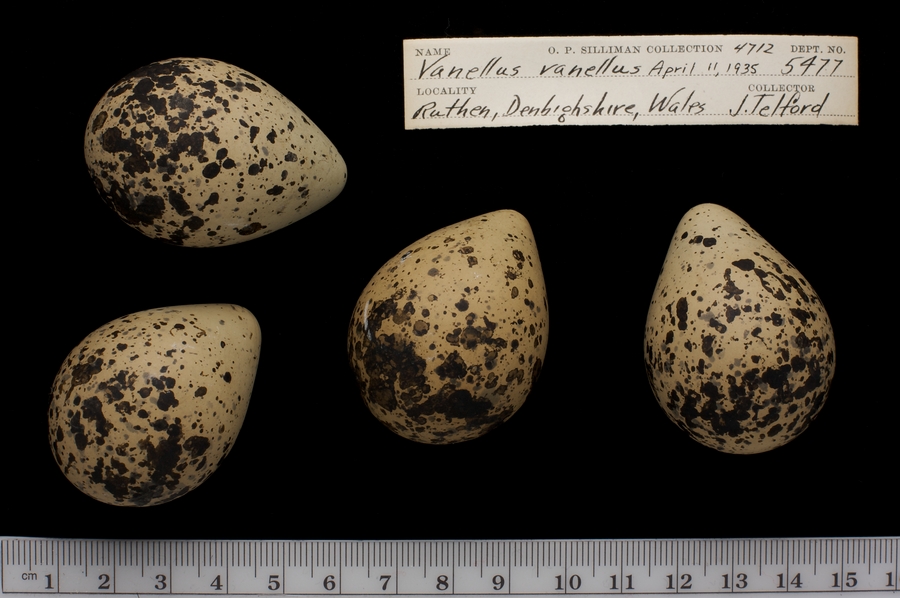 NAME O. P. SILLIMAN COLLECTION 4712 DEPT. NO.
Vanellus vanellus April 11, 1935 5477
LOCALITY COLLECTOR
Ruthen, Denbighshire, Wales J. Telford
cm 1 2 3 4 5 6 7 8 9 10 11 12 13 14 15 1